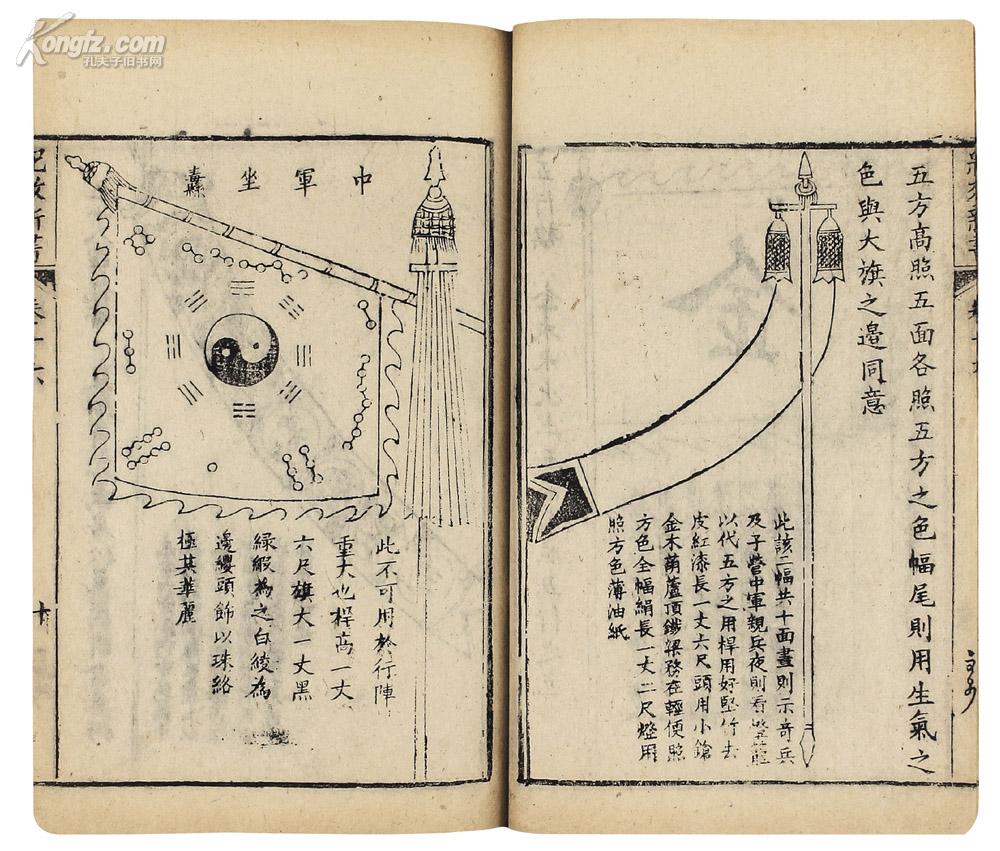 五方高照五面各照五方之色幅尾則用生氣之
色與大旗之邉同意
此該二幅共十面晝則示奇兵
及子營中軍親兵夜則看
以代五方之用桿用好堅竹去
皮紅漆長一丈六尺頭用小鎗
金木葫蘆頂鐵梁務在輕便照
方色全幅絹長一丈二尺燈用
照方色薄油紙
中軍坐纛
此不可用於行陣
重大也桿高一丈
六尺旗大一丈黒
緑緞為之白綾為
邊纓頭飾以珠絡
極其華麗
紀效新書
Kongfz.com
孔夫子旧书网